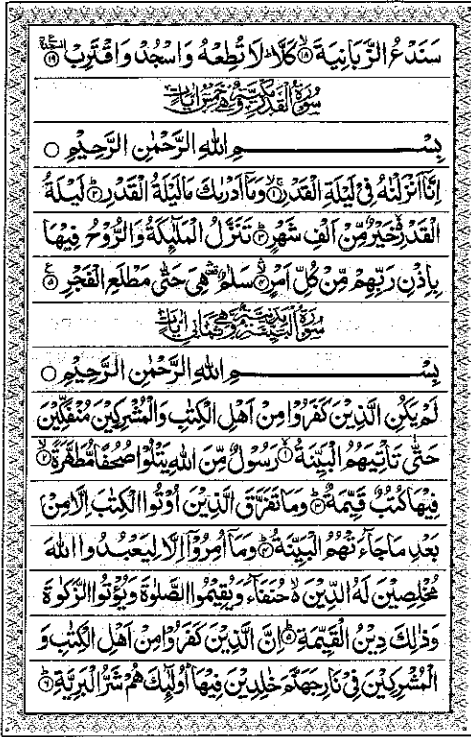 سَنَدْعُ الزَّبَانِيَةَ ۝١٨ كَلَّا ؕ لَا تُطِعْهُ وَاسْجُدْ وَاقْتَرِبْ ۝١٩
سُوْرَةُ الْقَدْرِ مَكِّيَّةٌ وَّهِيَ خَمْسُ اٰيَاتٍ
بِسْمِ اللهِ الرَّحْمٰنِ الرَّحِيْمِ ○
اِنَّاۤ اَنْزَلْنٰهُ فِيْ لَيْلَةِ الْقَدْرِ ۝١ وَمَاۤ اَدْرٰىكَ مَا لَيْلَةُ الْقَدْرِ ۝٢ لَيْلَةُ
الْقَدْرِ خَيْرٌ مِّنْ اَلْفِ شَهْرٍ ۝٣ تَنَزَّلُ الْمَلٰٓئِكَةُ وَالرُّوْحُ فِيْهَا
بِاِذْنِ رَبِّهِمْ مِّنْ كُلِّ اَمْرٍ ۝٤ سَلٰمٌ هِيَ حَتّٰى مَطْلَعِ الْفَجْرِ ۝٥
سُوْرَةُ الْبَيِّنَةِ مَدَنِيَّةٌ وَّهِيَ ثَمَانُ اٰيَاتٍ
بِسْمِ اللهِ الرَّحْمٰنِ الرَّحِيْمِ ○
لَمْ يَكُنِ الَّذِيْنَ كَفَرُوْا مِنْ اَهْلِ الْكِتٰبِ وَالْمُشْرِكِيْنَ مُنْفَكِّيْنَ
حَتّٰى تَاْتِيَهُمُ الْبَيِّنَةُ ۝١ رَسُوْلٌ مِّنَ اللهِ يَتْلُوْا صُحُفًا مُّطَهَّرَةً ۝٢
فِيْهَا كُتُبٌ قَيِّمَةٌ ۝٣ وَمَا تَفَرَّقَ الَّذِيْنَ اُوْتُوا الْكِتٰبَ اِلَّا مِنْۢ
بَعْدِ مَا جَآءَتْهُمُ الْبَيِّنَةُ ۝٤ وَمَاۤ اُمِرُوْۤا اِلَّا لِيَعْبُدُوا اللهَ
مُخْلِصِيْنَ لَهُ الدِّيْنَ ۙ حُنَفَآءَ وَيُقِيْمُوا الصَّلٰوةَ وَيُؤْتُوا الزَّكٰوةَ
وَذٰلِكَ دِيْنُ الْقَيِّمَةِ ۝٥ اِنَّ الَّذِيْنَ كَفَرُوْا مِنْ اَهْلِ الْكِتٰبِ وَ
الْمُشْرِكِيْنَ فِيْ نَارِ جَهَنَّمَ خٰلِدِيْنَ فِيْهَا ؕ اُولٰٓئِكَ هُمْ شَرُّ الْبَرِيَّةِ ۝٦